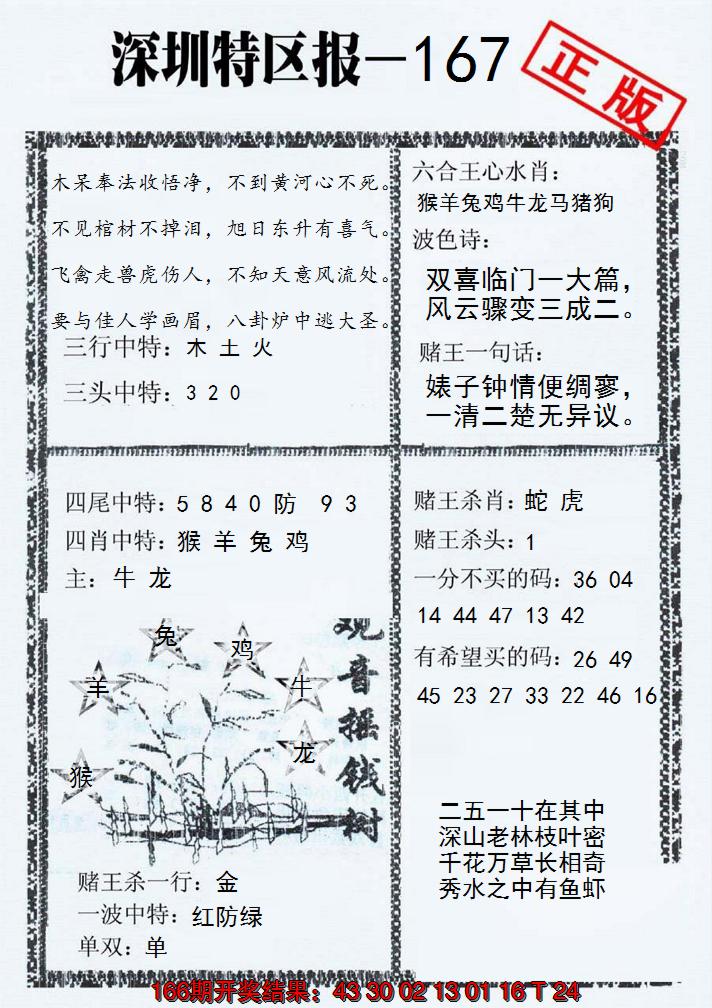 深圳特区报－167
正版
木呆奉法收悟净，不到黄河心不死。
不见棺材不掉泪，旭日东升有喜气。
飞禽走兽虎伤人，不知天意风流处。
要与佳人学画眉，八卦炉中逃大圣。
三行中特：木 土 火
三头中特：3 2 0
六合王心水肖：
猴羊兔鸡牛龙马猪狗
波色诗：
双喜临门一大篇，
风云骤变三成二。
赌王一句话：
婊子钟情便绸寥，
一清二楚无异议。
四尾中特：5 8 4 0 防 9 3
四肖中特：猴 羊 兔 鸡
主：牛 龙
兔
鸡
羊
牛
龙
猴
观音摇钱树
赌王杀一行：金
一波中特：红防绿
单双：单
赌王杀肖：蛇 虎
赌王杀头：1
一分不买的码：36 04
14 44 47 13 42
有希望买的码：26 49
45 23 27 33 22 46 16
二五一十在其中
深山老林枝叶密
千花万草长相奇
秀水之中有鱼虾
166期开奖结果：43 30 02 13 01 16 T 24